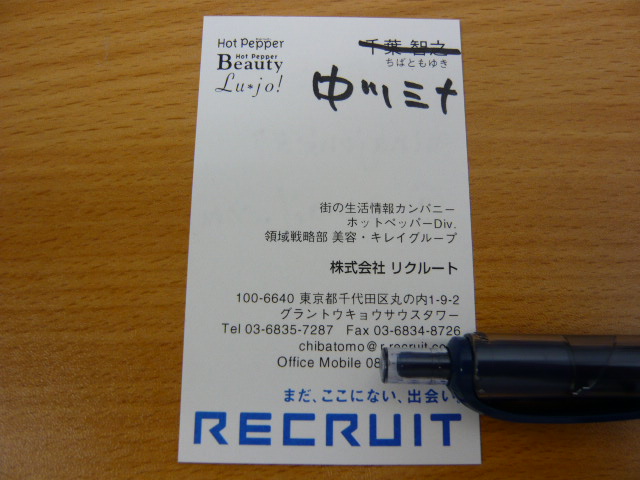 Hot Pepper
Hot Pepper
Beauty
Lu*jo!
千葉 智之
ちばともゆき
中川ミナ
街の生活情報カンパニー
ホットペッパーDiv.
領域戦略部 美容・キレイグループ
株式会社 リクルート
100-6640 東京都千代田区丸の内1-9-2
グラントウキョウサウスタワー
Tel 03-6835-7287 Fax 03-6834-8726
chibatomo@r.recruit.co
Office Mobile 08
まだ、ここにない、出会い。
RECRUIT